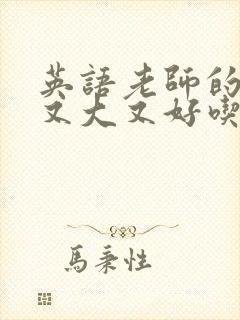 英語老師的
又大又好喫
馬秉性